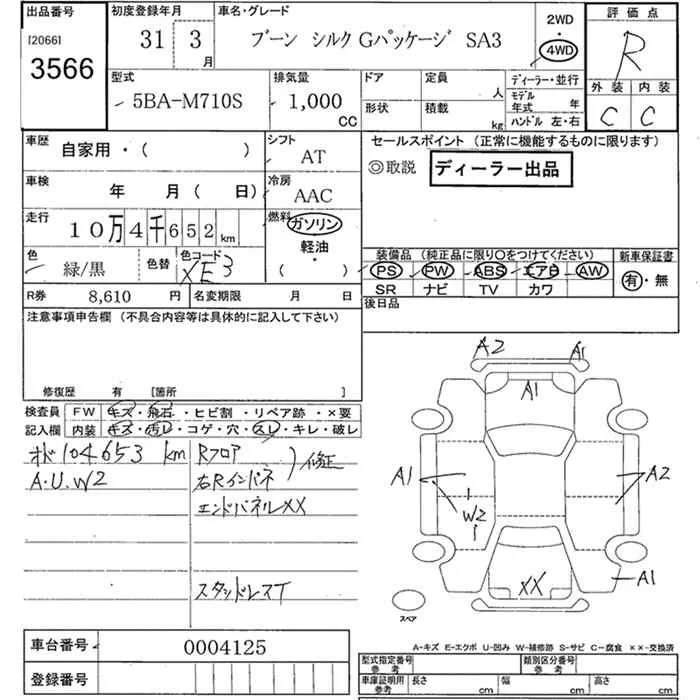 出品番号
[2066]
3566
初度登録年月
31 3
月
車名・グレード
ブーン シルク Gパッケージ SA3
2WD
・
4WD
評価点
R
外装 内装
C C
型式
5BA-M710S
排気量
1,000
CC
ドア
形状
定員
人
積載
kg
ディーラー・並行
モデル
年式 年
ハンドル 左・右
車歴
自家用・( )
シフト
AT
セールスポイント (正常に機能するものに限ります)
◎取説
ディーラー出品
車検
年 月( 日)
冷房
AAC
走行
10万4千652km
燃料
ガソリン
軽油
・
( )
色
緑/黒
色替
色コード
XE3
装備品 (純正品に限り○をつけてください)
PS PW ABS エアB AW
SR ナビ TV カワ
新車保証書
有・無
R券
8,610 円
名変期限 月 日
後日品
注意事項申告欄 (不具合内容等は具体的に記入して下さい)
修復歴 有 [箇所 ]
検査員
記入欄
FW キズ・飛石・ヒビ割・リペア跡・×要
内装 キズ・汚レ・コゲ・穴・スレ・キレ・破レ
オド104653 km
A.U.W2
Rフロア
右Rインパネ
)修正
エンドパネルXX
スタッドレスT
A2
A1
A1
A1
W2
A2
A1
XX
スペア
A-キズ E-エクボ U-凹み W-補修跡 S-サビ C-腐食 ××-交換済
車台番号
0004125
登録番号
型式指定番号
参考
類別区分番号
参考
車庫証明用
参考
長さ cm
幅 cm
高さ cm